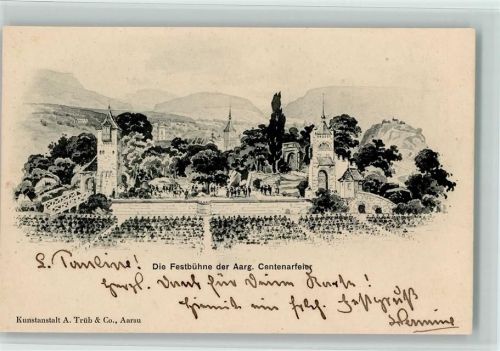 Die Festbühne der Aarg. Centenarfeier
L. Pauline!
Herzl. Dank für Deine Karte!
Hiemit ein frdl. Festgruß
Hermine
Kunstanstalt A. Trüb & Co., Aarau